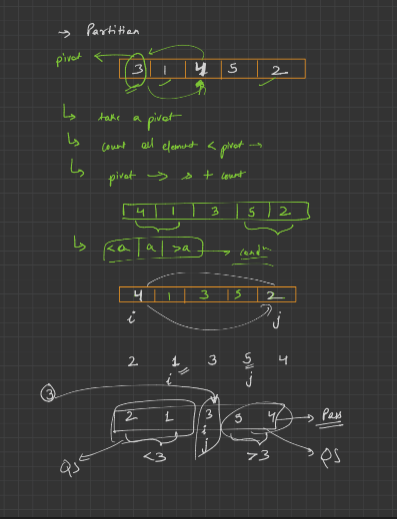 → Partition
pivot ← 3 | 1 | 4 | 5 | 2
↳ take a pivot
↳ count all element < pivot →
↳ pivot → s + count
4 | 1 | 3 | 5 | 2
↳ <a | a | >a → condn
4 | 1 | 3 | 5 | 2
i j
2 1 3 5 4
i j
③
2 1 3 5 4 → Pass
i
j
QS <3 >3 QS